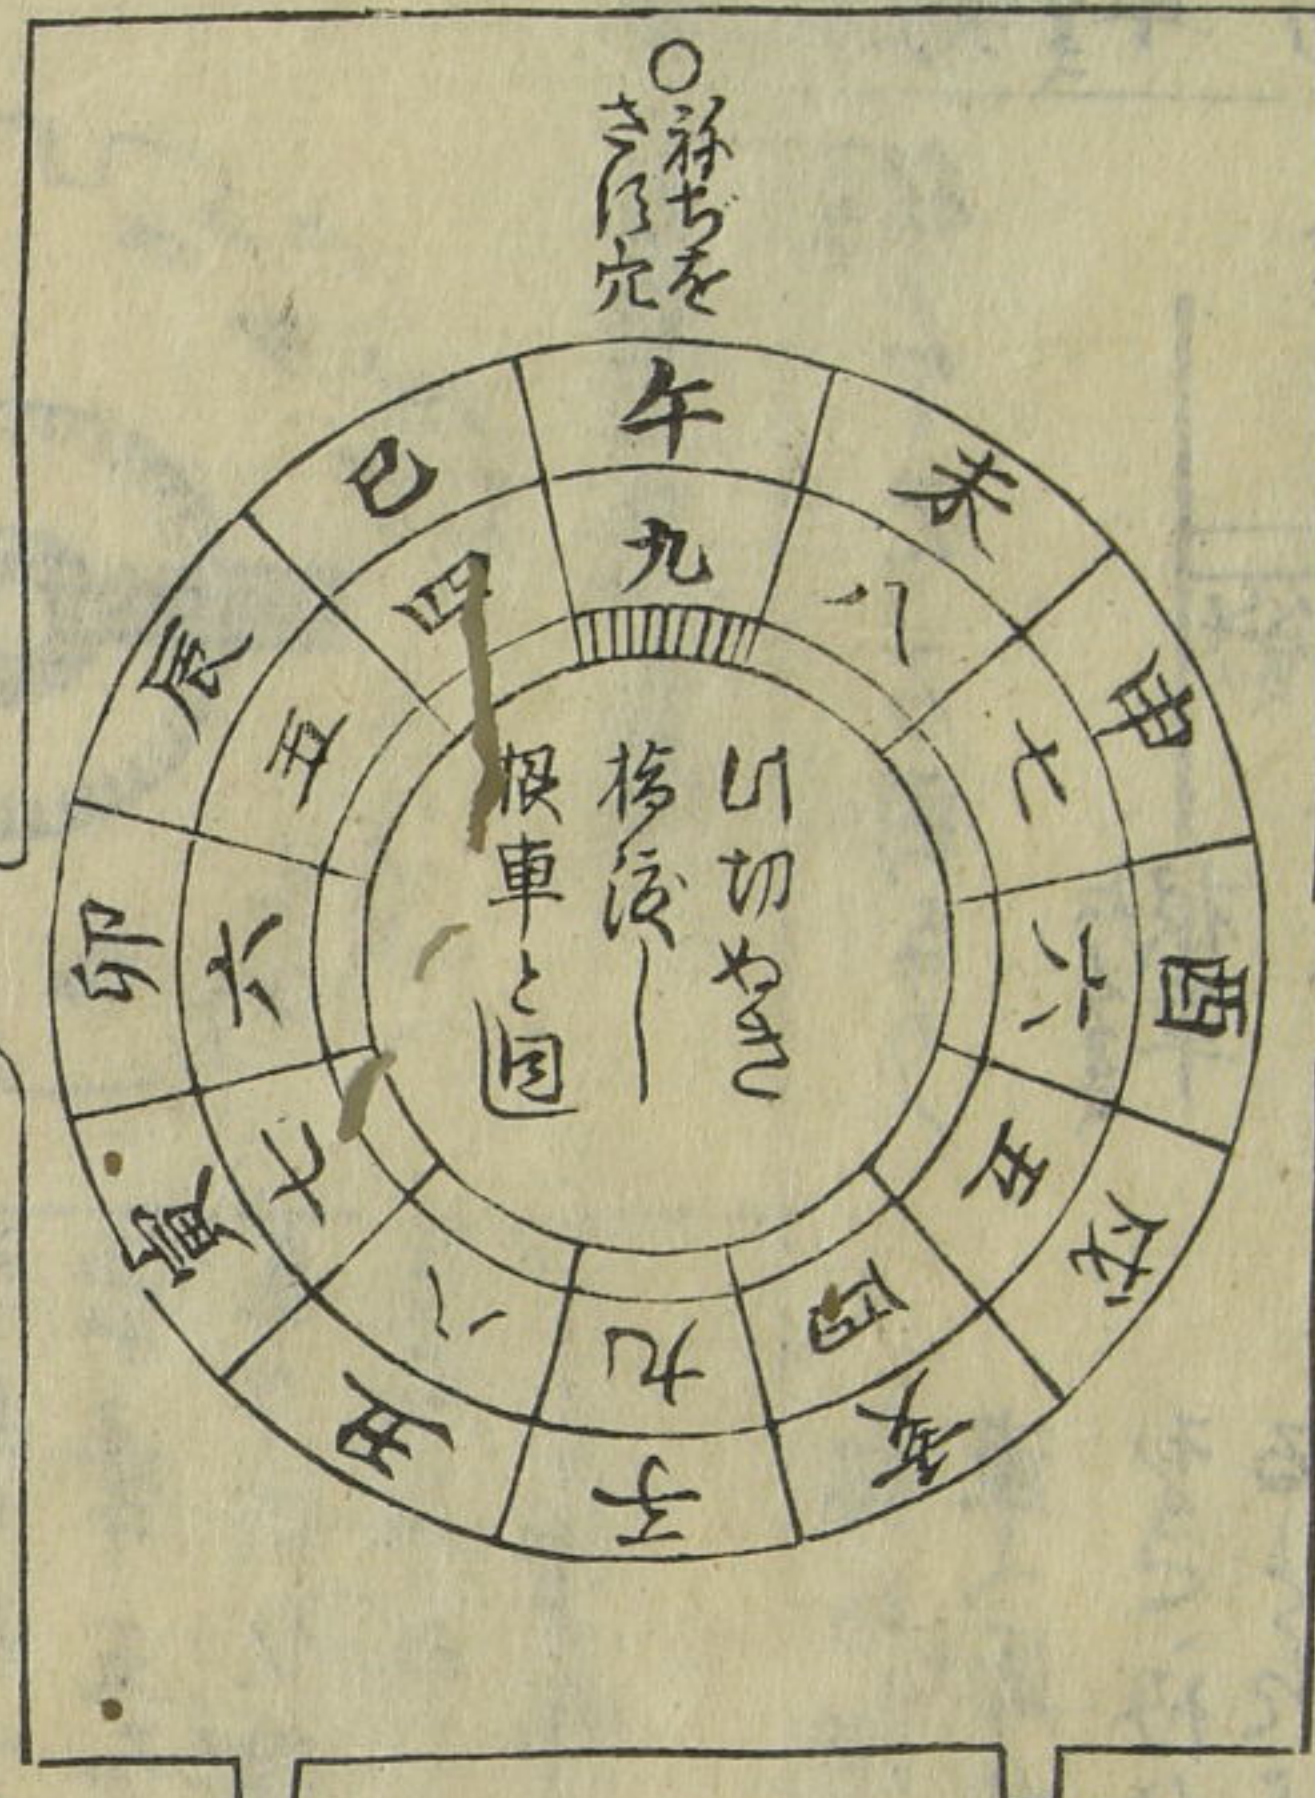 ○ねぢを
さす穴
午
未
申
酉
戌
亥
子
丑
寅
卯
辰
巳
九
八
七
六
五
四
九
八
七
六
五
四
此切ぬき
橋渡し
根車と同